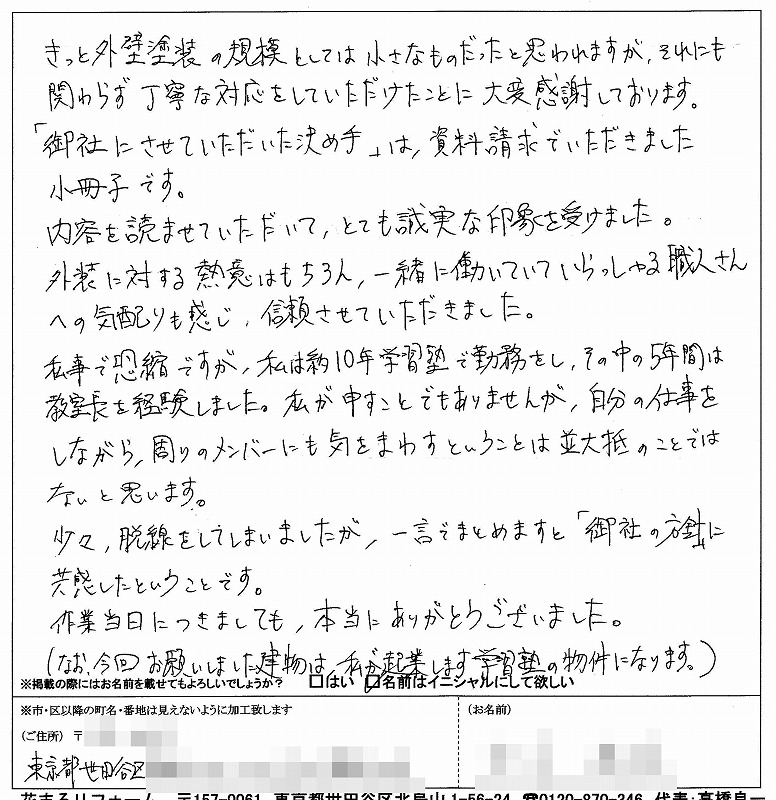 きっと外壁塗装の規模としては小さなものだったと思われますが、それにも
関わらず丁寧な対応をしていただけたことに大変感謝しております。
「御社にさせていただいた決め手」は、資料請求でいただきました
小冊子です。
内容を読ませていただいて、とても誠実な印象を受けました。
外装に対する熱意はもちろん、一緒に働いていていらっしゃる職人さん
への気配りも感じ、信頼させていただきました。
私事で恐縮ですが、私は約10年学習塾で勤務をし、その中の5年間は
教室長を経験しました。私が申すことでもありませんが、自分の仕事を
しながら、周りのメンバーにも気をまわすということは並大抵のことでは
ないと思います。
少々、脱線をしてしまいましたが、一言でまとめますと「御社の方針」に
共感したということです。
作業当日につきましても、本当にありがとうございました。
(なお、今回お願いしました建物は、私が起業します学習塾の物件になります。)
※掲載の際にはお名前を載せてもよろしいでしょうか? □はい ☑名前はイニシャルにして欲しい
※市・区以降の町名・番地は見えないように加工致します
(お名前)
(ご住所) 〒
東京都世田谷区
花まるリフォーム 〒157-0061 東京都世田谷区北烏山1-56-24 ☎0120-870-246 代表:高橋良一